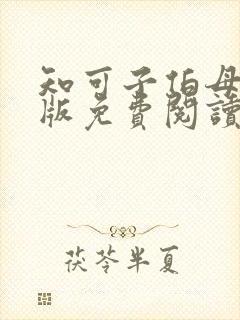 知可子伯母
版免費閱讀
茯苓半夏